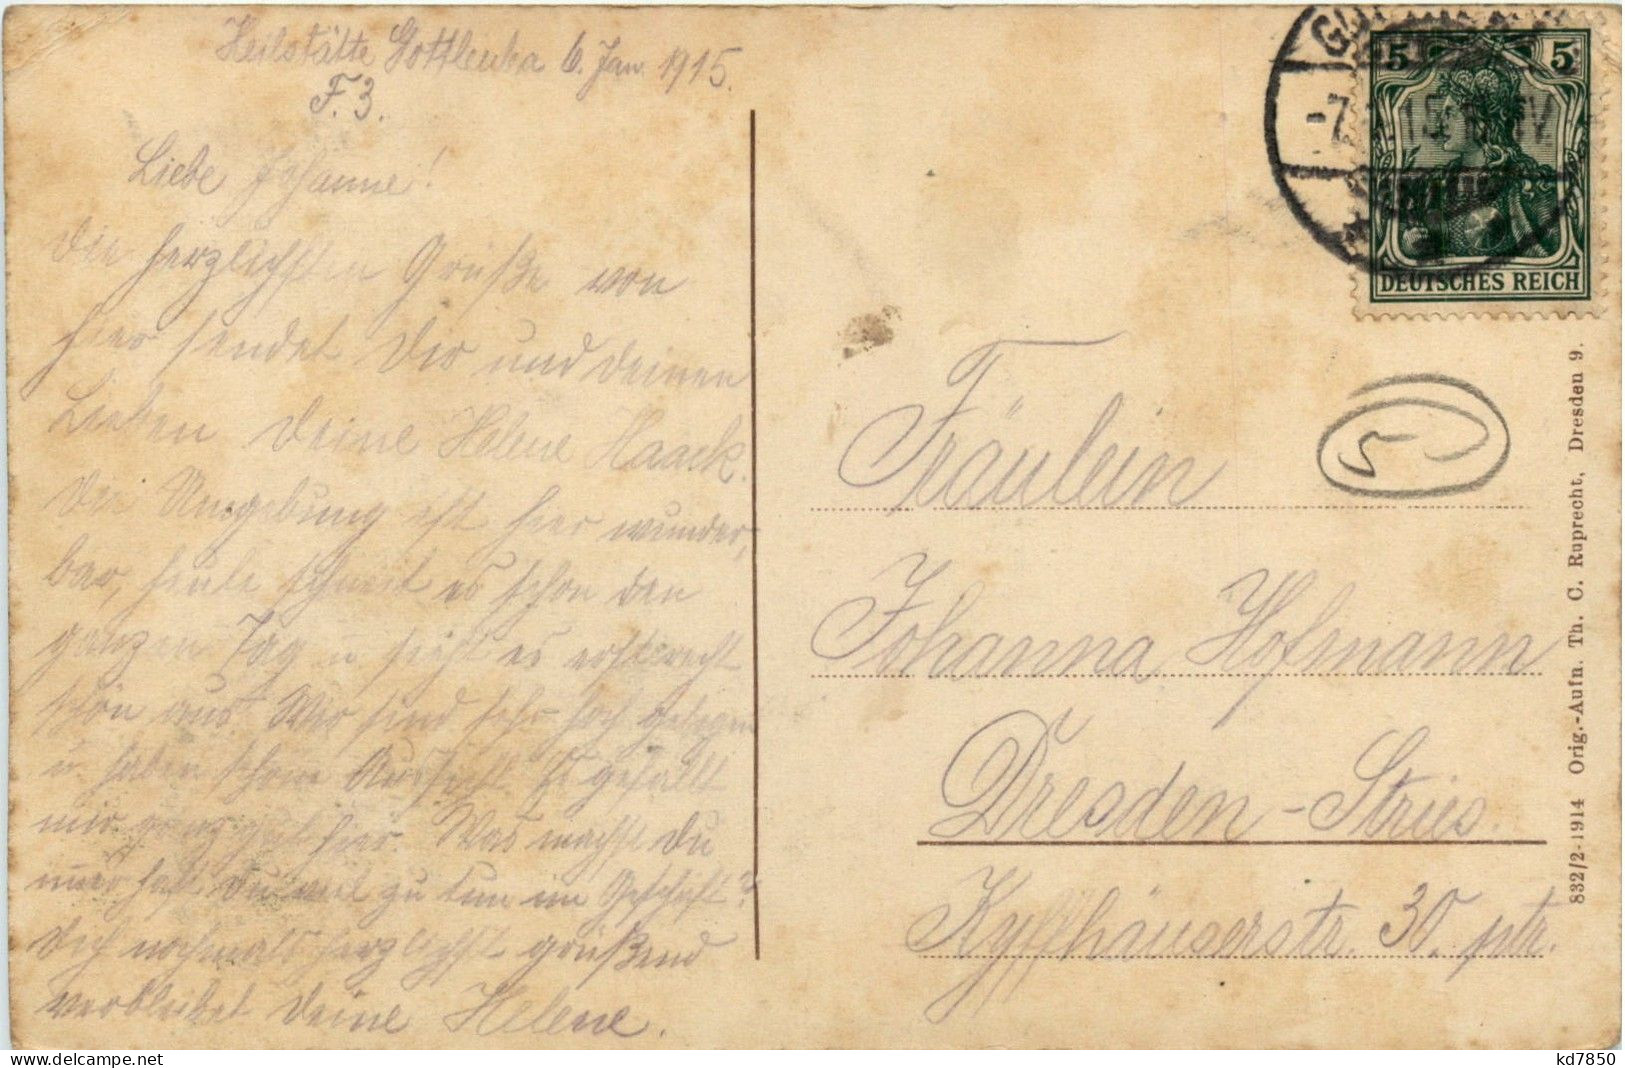 Heilstätte Gottleuba 6. Jan. 1915.
F. 3.
Liebe Johanne!
Die herzlichsten Grüße von
hier sendet Dir und deinen
Lieben Deine Helene Haack.
Die Umgebung ist hier wunder,
bar, heute schneit es schon den
ganzen Tag u sieht es erst recht
schön aus. Wir sind sehr hoch gelegen
u. haben schöne Aussicht. Es gefällt
mir ganz gut hier. Was machst Du
hast Du viel zu tun im Geschäft?
Dich nochmals herzlichst grüßend
verbleibt Deine Helene.
5 5
DEUTSCHES REICH
5
Fräulein
Johanna Hofmann
Dresden-Stries.
Kyffhäuserstr. 30. ptr.
832/2-1914 Orig.-Aufn. Th. C. Ruprecht, Dresden 9.
www.delcampe.net
kd7850